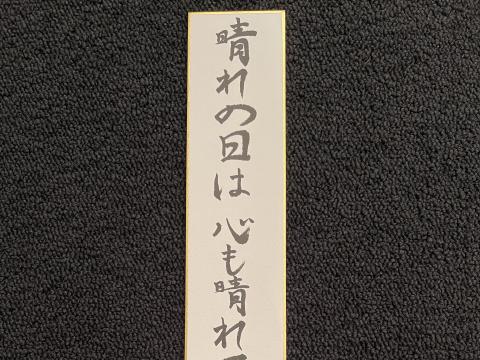 晴れの日は心も晴れ